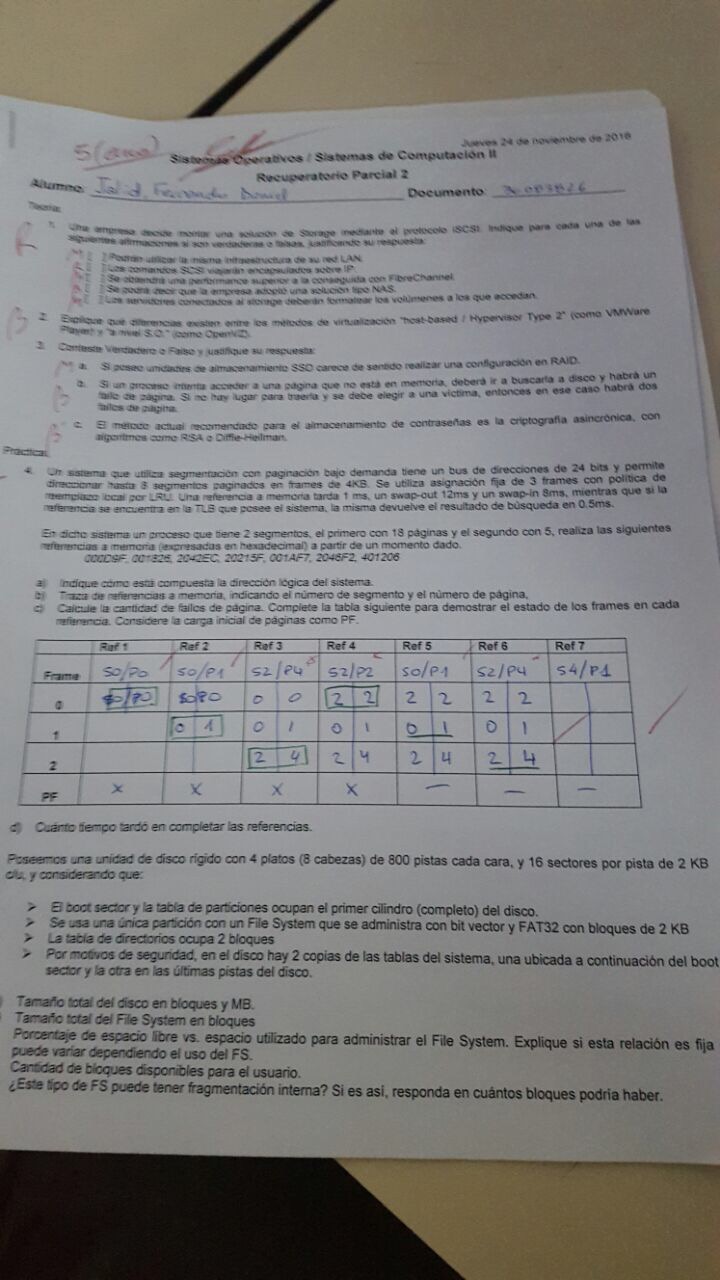 5 (cinco)
Jueves 24 de noviembre de 2016
Sistemas Operativos / Sistemas de Computación II
Recuperatorio Parcial 2
Alumno: Jalid, Fernando Daniel Documento:
Teoría:
1. Una empresa decide montar una solución de Storage mediante el protocolo iSCSI. Indique para cada una de las
siguientes afirmaciones si son verdaderas o falsas, justificando su respuesta:
[ ] Podrán utilizar la misma infraestructura de su red LAN.
[ ] Los comandos SCSI viajarán encapsulados sobre IP.
[ ] Se obtendrá una performance superior a la conseguida con FibreChannel.
[ ] Se podrá decir que la empresa adoptó una solución tipo NAS.
[ ] Los servidores conectados al storage deberán formatear los volúmenes a los que accedan.
B 2. Explique qué diferencias existen entre los métodos de virtualización "host-based / Hypervisor Type 2" (como VMWare
Player) y "a nivel S.O." (como OpenVZ).
3. Conteste Verdadero o Falso y justifique su respuesta:
M a. Si poseo unidades de almacenamiento SSD carece de sentido realizar una configuración en RAID.
B b. Si un proceso intenta acceder a una página que no está en memoria, deberá ir a buscarla a disco y habrá un
fallo de página. Si no hay lugar para traerla y se debe elegir a una víctima, entonces en ese caso habrá dos
fallos de página.
B c. El método actual recomendado para el almacenamiento de contraseñas es la criptografía asincrónica, con
algoritmos como RSA o Diffie-Hellman.
Práctica:
4. Un sistema que utiliza segmentación con paginación bajo demanda tiene un bus de direcciones de 24 bits y permite
direccionar hasta 8 segmentos paginados en frames de 4KB. Se utiliza asignación fija de 3 frames con política de
reemplazo local por LRU. Una referencia a memoria tarda 1 ms, un swap-out 12ms y un swap-in 8ms, mientras que si la
referencia se encuentra en la TLB que posee el sistema, la misma devuelve el resultado de búsqueda en 0.5ms.
En dicho sistema un proceso que tiene 2 segmentos, el primero con 18 páginas y el segundo con 5, realiza las siguientes
referencias a memoria (expresadas en hexadecimal) a partir de un momento dado.
000D9F, 001826, 2042EC, 20215F, 001AF7, 2046F2, 401206
a) Indique cómo está compuesta la dirección lógica del sistema.
b) Traza de referencias a memoria, indicando el número de segmento y el número de página,
c) Calcule la cantidad de fallos de página. Complete la tabla siguiente para demostrar el estado de los frames en cada
referencia. Considere la carga inicial de páginas como PF.
Ref 1 Ref 2 Ref 3 Ref 4 Ref 5 Ref 6 Ref 7
Frame S0/P0 S0/P1 S2/P4 S2/P2 S0/P1 S2/P4 S4/P1
0 S0/P0 S0P0 0 0 2 2 2 2 2 2
1 0 1 0 1 0 1 0 1 0 1
2 2 4 2 4 2 4 2 4
PF x x x x — — —
d) Cuánto tiempo tardó en completar las referencias.
Poseemos una unidad de disco rígido con 4 platos (8 cabezas) de 800 pistas cada cara, y 16 sectores por pista de 2 KB
c/u, y considerando que:
➢ El boot sector y la tabla de particiones ocupan el primer cilindro (completo) del disco.
➢ Se usa una única partición con un File System que se administra con bit vector y FAT32 con bloques de 2 KB
➢ La tabla de directorios ocupa 2 bloques
➢ Por motivos de seguridad, en el disco hay 2 copias de las tablas del sistema, una ubicada a continuación del boot
sector y la otra en las últimas pistas del disco.
Tamaño total del disco en bloques y MB.
Tamaño total del File System en bloques
Porcentaje de espacio libre vs. espacio utilizado para administrar el File System. Explique si esta relación es fija
puede variar dependiendo el uso del FS.
Cantidad de bloques disponibles para el usuario.
¿Este tipo de FS puede tener fragmentación interna? Si es así, responda en cuántos bloques podría haber.